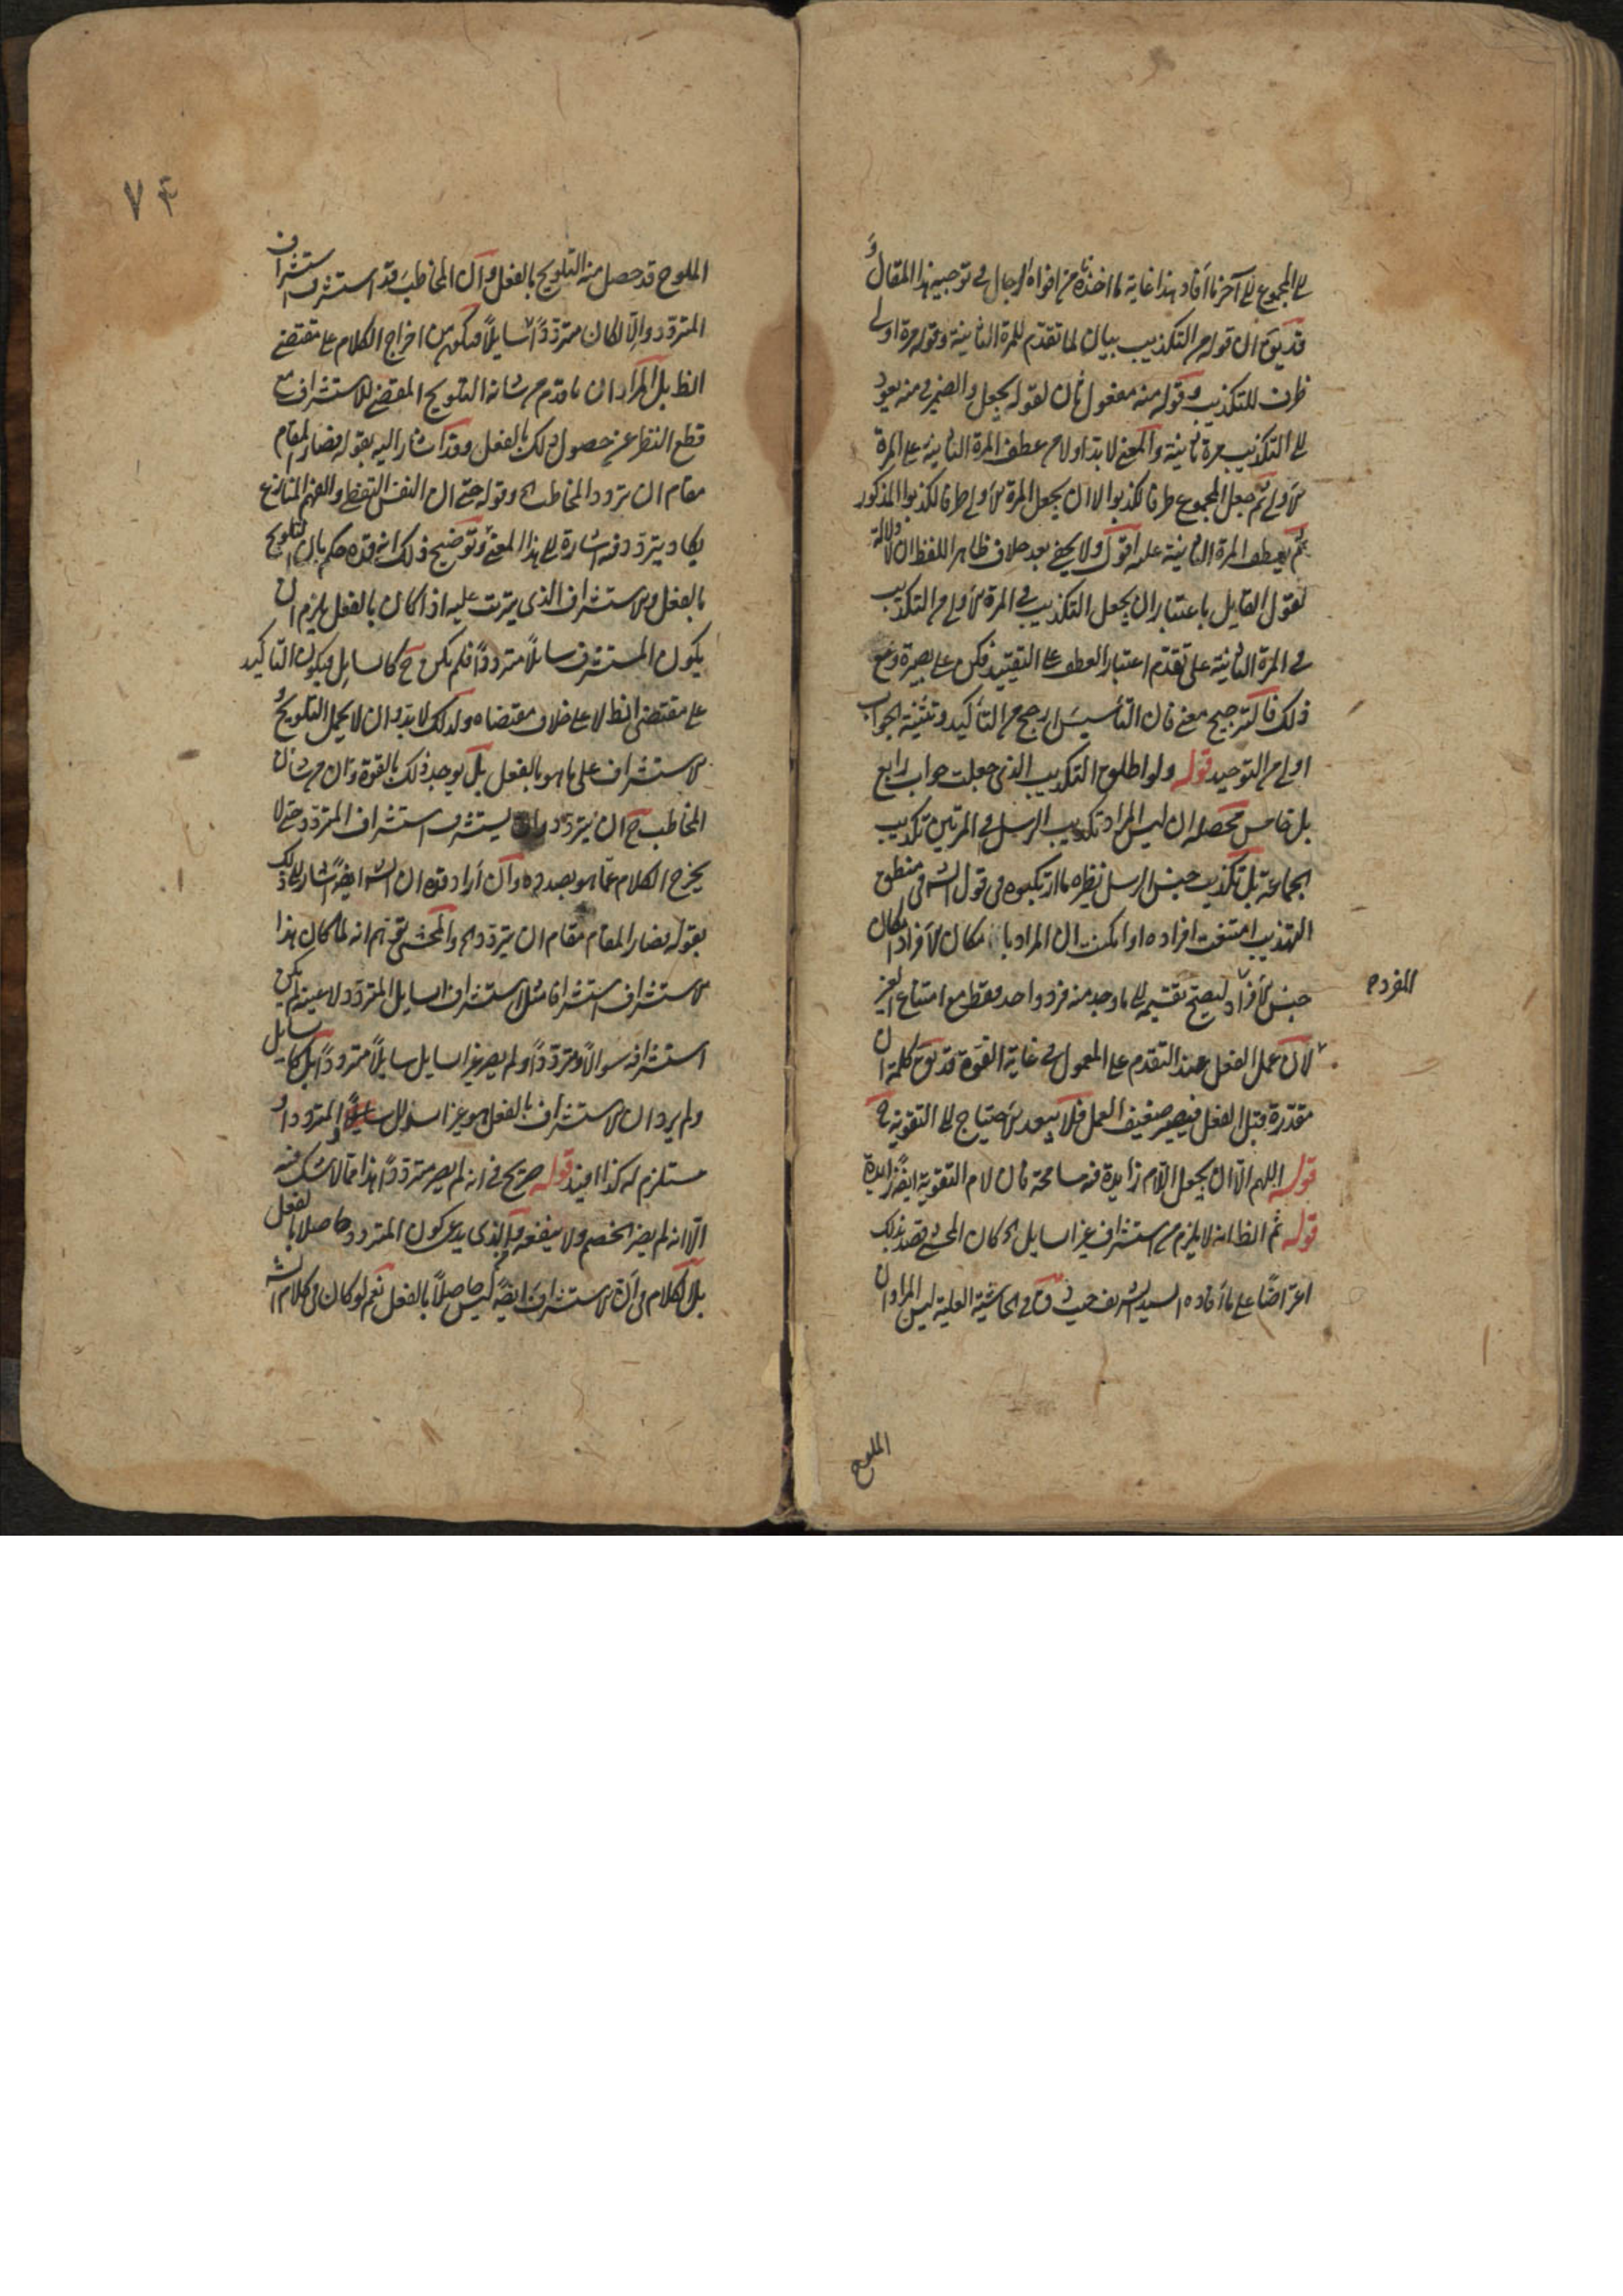 الى المجموع الى آخر ما أفاد هذا غاية ما اخذناه من افواه الرجال فى توجيه هذا المقال و
قد يق ان قوله من التكذيب بيان لما تقدم للمرة الثانية وقوله مرة اولى
ظرف للتكذيب وقوله منه مفعول ثان لقوله يجعل والضمير فى منه يعود
الى التكذيب مرة ثانية والمعنى لا بد اولا من عطف المرة الثانية على المرة
الأولى ثم جعل المجموع ظرفا لكذبوا لا ان يجعل المرة الأولى ظرفا لكذبوا المذكور
ثم يعطف المرة الثانية عليه اقول ولا يخفى بعد خلاف ظاهر اللفظ ان لا دلالة
لقول القايل باعتبار ان يجعل التكذيب فى المرة الأولى من التكذيب
فى المرة الثانية على تقدم اعتبار العطف على التقييد فكن على بصيرة ومع
ذلك فالترجيح معنى فان التأسيس ارجح من التأكيد وتثنية الجواب
اولى من التوحيد قوله ولو اطلوح التكذيب الذى جعلت جواب رابع
بل خامس محصله ان ليس المراد تكذيب الرسل فى المرتين تكذيب
الجماعة بل تكذيب جنس الرسل نظيره ما ارتكبوه فى قول الش فى منطق
التهذيب امتنعت افراده او امكنت ان المراد بامكان الأفراد امكان
جنس الأفراد ليصح تقسيمه الى ما وجد منه فرد واحد فقط مع امتناع الغير
المفرد
لأن عمل الفعل عند التقدم على المعمول فى غاية القوة قد يق كلمة ان
مقدرة قبل الفعل فيصير ضعيف العمل فلا يبعد الأحتياج الى التقوية
قوله اللهم الّا ان يجعل اللام زايدة فيه مسامحة فان لام التقوية ايضً زايدة
قوله ثم الظ انه لا يلزم من استشراف غير السايل الخ كان المحشى قصد بذلك
اعتراضًا على ما أفاده السيد الشريف حيث ق فى الحاشية العلية ليس المراد ان
الملوح
٧٤
الملوح قد حصل منه التلويح بالفعل وان المخاطب قد استشرف استشراف
المتردد والّا لكان مترددًا سايلًا فيكون من اخراج الكلام على مقتضى
الظ بل المراد ان ما قدم من شانه التلويح المقتضى للاستشراف مع
قطع النظر عن حصول ذلك بالفعل وقد اشار اليه بقوله فصار المقام
مقام ان يتردد المخاطب الخ وقوله حتى ان النفس اليقظى والفهم المتنازع
يكاد يتردد فيه اشارة الى هذا المعنى وتوضيح ذلك انه قده حكم بان التلويح
بالفعل والاستشراف الذى يترتب عليه اذا كان بالفعل يلزم ان
يكون المستشرف سايلًا مترددًا فلم يكن ح كالسايل فيكون التاكيد
على مقتضى الظ لا على خلاف مقتضاه ولذلك لا بد وان لا يحمل التلويح و
الاستشراف على ما هو بالفعل بل يوجد ذلك بالقوة وان من شان
المخاطب ح ان يتردد وان يستشرف استشراف المتردد حتى لا
يخرج الكلام عما هو بصدده وان أراد قده ان الش ايضً اشار الى ذلك
بقوله فصار المقام مقام ان يتردد الخ والمحشى توهم انه لما كان هذا
الاستشراف استشرافا مثل استشراف السايل المتردد لا عينه لم يكن
استشرافه سوالًا وترددًا ولم يصر غير السايل سايلًا مترددًا بل كالسايل
ولم يرد ان الاستشراف بالفعل هو غير السؤال المتردد او
مستلزم له كذا افيد قوله صريح فى انه لم يصر مترددًا هذا مما لا شك فيه
الّا انه لم يضر الخصم ولا ينفعه والذى يدعى كون المتردد حاصلا بالفعل
بل الكلام فى ان الاستشراف ايضً ليس حاصلًا بالفعل نعم لو كان فى كلام الش